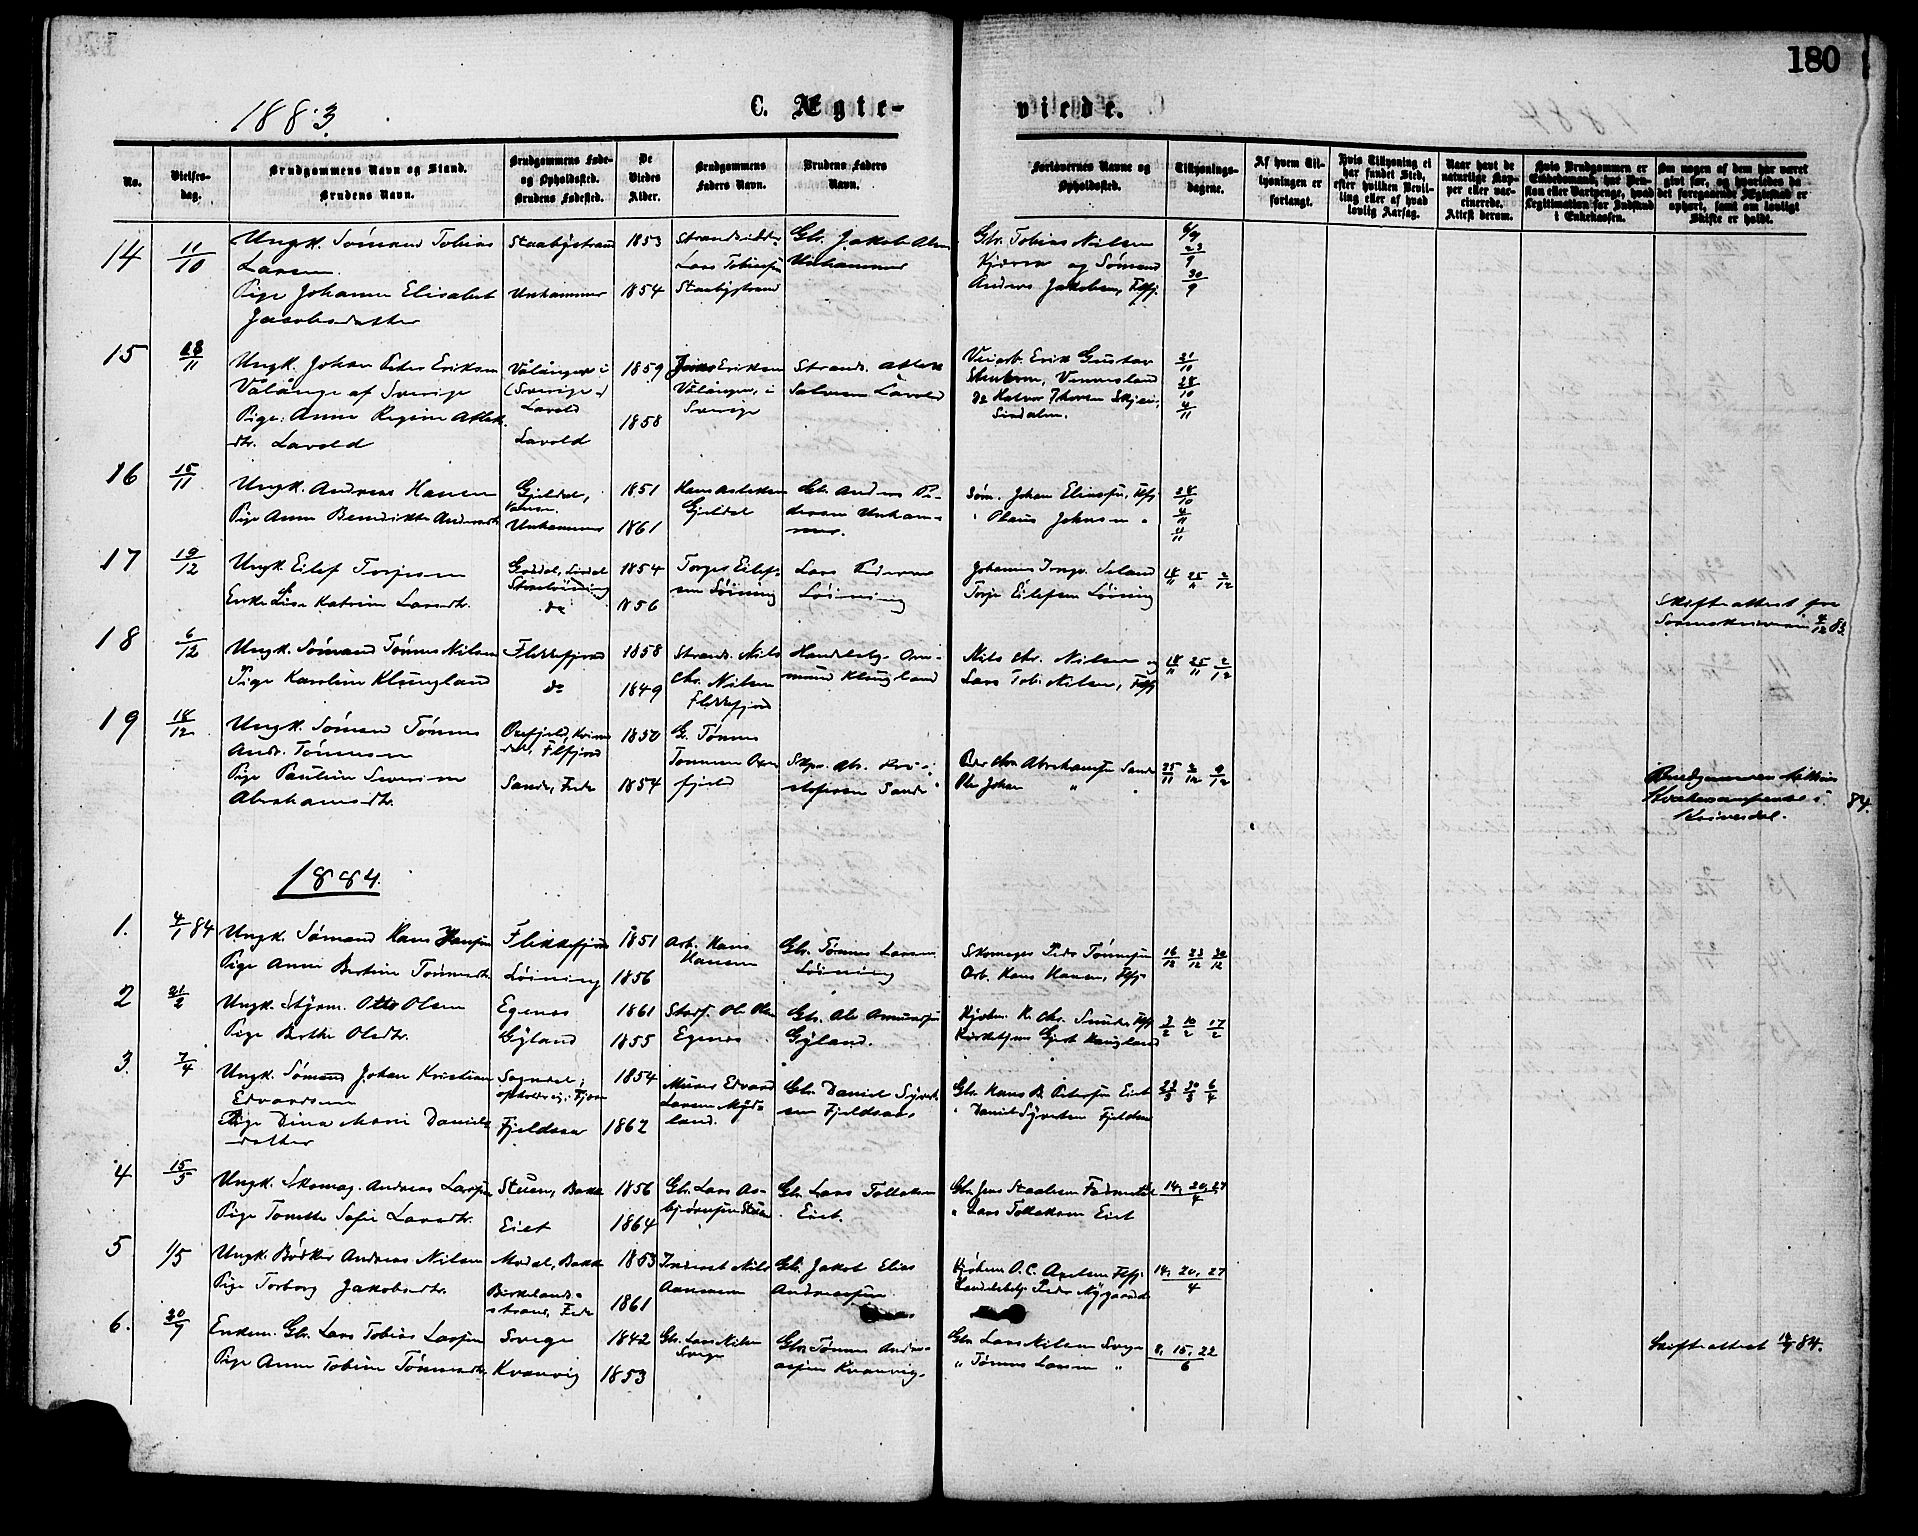 180
1883
C. Ægte-
viede.
No.
Vielses-
dag.
Brudgommens Navn og Stand.
Brudens Navn.
Brudgommens Føde-
og Opholdssted.
Brudens Fødested.
De
Viedes
Alder.
Brudgommens
Faders Navn.
Brudens Faders
Navn.
Forlovernes Navne og
Opholdssted.
Tillysnings-
dagene.
Af hvem Til-
lysningen er
forlangt.
Hvis Tillysning ei
har fundet Sted,
efter hvilken Bevil-
ling eller af hvad
lovlig Aarsag.
Naar havt de
naturlige Kop-
per eller vac-
cinerede.
Attest derom.
Hvis Brudgommen er
Embedsmand, hvis Pen-
sion eller Vartpenge, hvad
Legitimation for Indskud
i Enkekassen.
Om nogen af dem har været
givt før, og hvorledes da
det foregaaende Ægteskab er
ophørt, samt om lovligt
Skifte er holdt.
14 11/10
Ungk. Sømand Tobias
Larsen
Pige Johanne Elisabet
Jacobsdatter
Staabystrand
Unhammer
1853
1854
Strandsidder
Lars Tobiassen
Staabystrand
Gbr. Jakob
Unhammer
Gbr. Tobias Nilsen
og Sømand
Andreas Jakobsen, Flfj.
23/9
30/9
15 18/11
Ungk. Johan Peter Eriksen
Vålånge af Sverige
Pige Anne Regine Atlak
dtr. Lavold
Vålånger i
(Sverige)
Lavold
Lavold
1859
1858
Eriksen
Vålånger i
Sverige
Strands. Atlak
Salvesen Lavold
Veiarb. Erik Gustav
Vennesland
Sirdalen.
21/10
28/10
4/11
16 15/11
Ungk. Andreas Hansen
Pige Anne Benedikte Andersdtr.
Gjeldal,
Unhammer
1851
1861
Hans
Gjeldal
Gbr. Anders Pe-
dersen Unham-
mer.
Søm. Johan Eliassen, Flfj.
" Olaus Johnsen "
28/10
4/11
11/11
17 19/12
Ungk. Eilef Torjesen
Enke Lise Katrine Larsdtr.
do
1854
1856
Torges Eilef-
sen Løining
Lars Pedersen
Løining
Johannes Seland
Torje Eilefsen Løining
18/11 25/11 2/12
Skifteattest fra
Sorenskriveren 4/12 83.
18 6/12
Ungk. Sømand Tønnes Nilsen
Pige Karoline Klungland
Flekkefjord
do
1858
1849
Strands. Nils
Chr. Nilsen
Flekkefjord
Handelsbg. Om-
mund Klungland
Nils Chr. Nilsen og
Lars Tob. Nilsen, Flfj.
18/11 25/11 2/12
19 18/12
Ungk. Sømand Tønnes
Andr. Tønnesen
Pige Pauline Severine
Abrahamsdtr.
Oxefjeld, Kvines-
dal, Flfjord
Sande, Fede
1850
1854
G. Tønnes
Tønnesen Oxe
fjeld
Skpr. Abr. Kri-
stofersen Sande
Peder Chr. Abrahamsen Sande
Ole Johan " "
25/11 2/12 9/12
Brudgommens
i 84.
Kvinesdal.
1884.
1. 4/1 84
Ungk. Sømand Hans Hansen
Pige Anne Bertine Tønnesdtr.
Flekkefjord
Løining
1851
1856
Arb. Hans
Hansen
Gbr. Tønnes Larsen
Løining
Skomager Peder Tønnesen
Arb. Hans Hansen, Flfj.
16/12 23/12 30/12
2 21/2
Ungk. Styrm. Otto Olsen
Pige Berthe Olsdtr.
Egenes
Gyland
1861
1855
Ole Olsen
Egenes
Gbr. Ole Amundsen
Gyland.
Kjøbm. K. Chr. Sunde, Flfj.
3/2 10/2 17/2
3. 7/4
Ungk. Sømand Johan Kristian
Edvardsen
Pige Dina Marie Daniels
datter
Sogndal,
Fjeldsaa
1854
1862
Murer Edvard
Larsen Myd-
land.
Gbr. Daniel Syvert-
sen Fjeldsaas
Gbr. Hans B. Petersen Eiet
" Daniel Syvertsen Fjeldsaa
23/3 30/3 6/4
4 15/5
Ungk. Skomag. Andreas Larsen
Pige Tonette Sofie Larsdtr.
Stuen, Bakke
Eiet
1856
1864
Gbr. Lars As-
bjørnsen Stuen
Gbr. Lars Tollaksen
Eiet.
Gbr. Jens Staalesen
" Lars Tollaksen Eiet
14, 20, 27
4
5 1/5
Ungk. Bødker Andreas Nilsen
Pige Torborg Jakobsdtr.
Modal, Bakke
Birkelands-
strand, Fede
1853
1861
Inderst Nils
Aanensen
Gbr. Jakob Elias
Andreassen
Kjøbm. O. C. Axelsen Flfj.
Handelsbetj. Peder Nygaard
14, 20, 27
4
6. 20/7
Enkem. Gbr. Lars Tobias Larsen
Pige Anne Tobine Tønnesdtr.
Svege
Kvanvig
1842
1853
Gbr. Lars Nilsen
Svege
Gbr. Tønnes Andre-
assen Kvanvig
Gbr. Lars Nilsen Svege
" Tønnes Larsen "
8, 15, 22
6
Skifteattest 84.